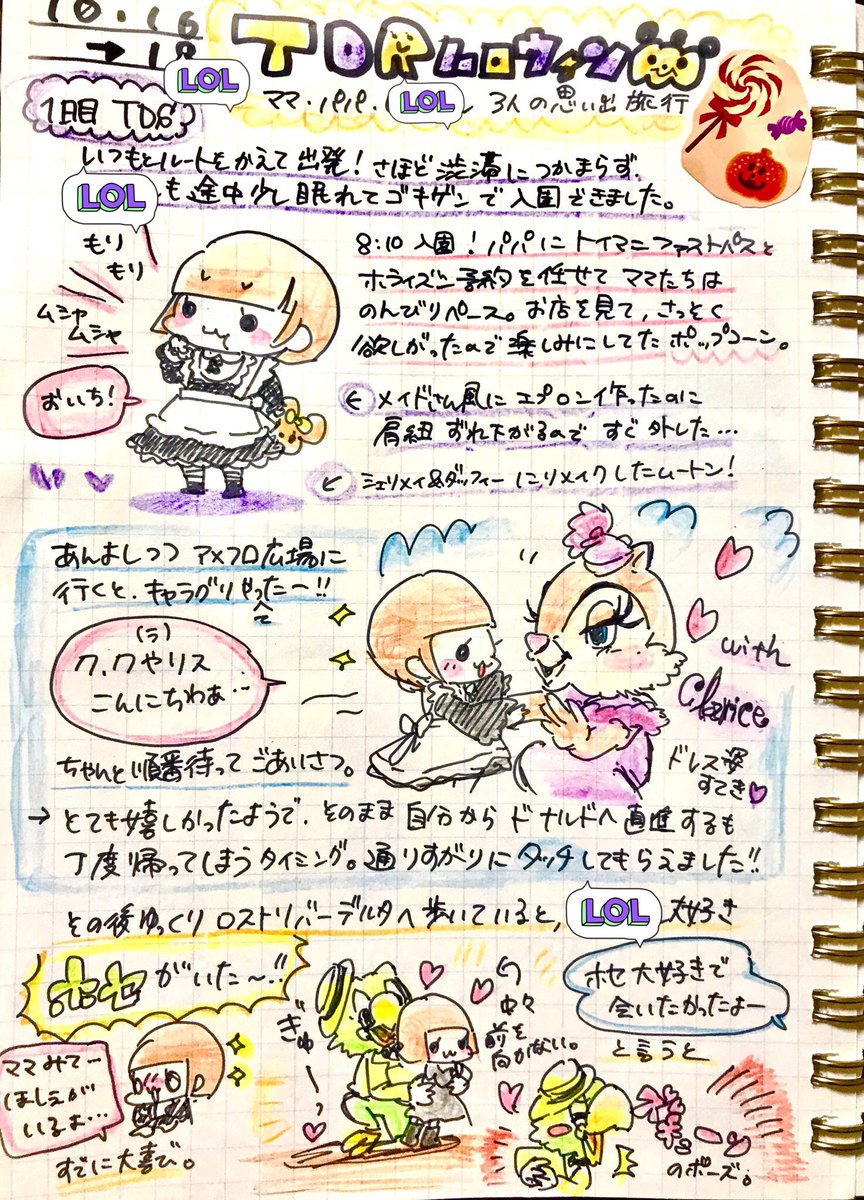 10.16
→18
TDRハロウィン
LOL
ママ・パパ・LOL 3人の思い出旅行
1日目 TDS
いつもとルートをかえて出発！さほど渋滞につかまらず、
LOLも途中少し眠れてゴキゲンで入園できました。
もり
もり
ムシャ
ムシャ
おいち！
8:10 入園！パパにトイマニファストパスと
ホライズン予約を任せてママたちは
のんびりペース。お店を見て、さっそく
欲しがったので楽しみにしてたポップコーン。
← メイドさん風にエプロン作ったのに
肩紐ずれ下がるのですぐ外した…
← シェリメイ&ダッフィーにリメイクしたムートン！
あんよしつつアメフロ広場に
行くと、キャラグリやった〜!!
(ラ)
ク、クやリス
こんにちわぁ…
with
Clarice
ドレス姿
すてき♥
ちゃんと順番待ってごあいさつ。
→ とても嬉しかったようで、そのまま自分からドナルドへ直進するも
丁度帰ってしまうタイミング。通りすがりにタッチしてもらえました!!
その後ゆっくりロストリバーデルタへ歩いていると、LOL大好き
ホセがいた〜!!
ママみてー
ほしぇが
いるよ…
すでに大喜び。
ぎゅーっ
中々
前を
向かない。
ホセ大好きで
会いたかったよー
と言うと
のポーズ。